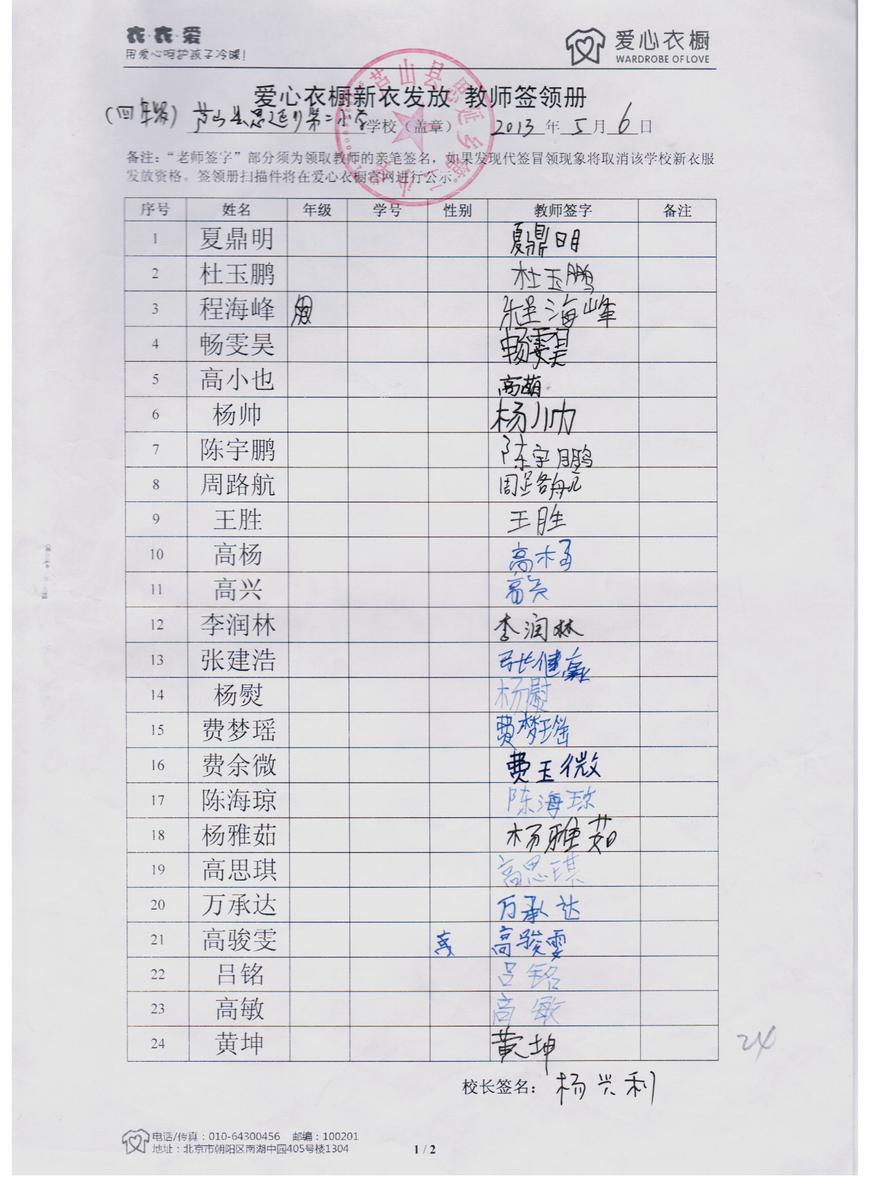 衣·衣·爱
用爱心呵护孩子冷暖!
爱心衣橱
WARDROBE OF LOVE
爱心衣橱新衣发放 教师签领册
(四年级) 芦山县思延乡第二小学学校(盖章) 2013年5月6日
备注:“老师签字”部分须为领取教师的亲笔签名,如果发现代签冒领现象将取消该学校新衣服
发放资格。签领册扫描件将在爱心衣橱官网进行公示。
序号 姓名 年级 学号 性别 教师签字 备注
1 夏鼎明 夏鼎明
2 杜玉鹏 杜玉鹏
3 程海峰 程海峰
4 畅雯昊 畅雯昊
5 高小也 高萌
6 杨帅 杨帅
7 陈宇鹏 陈宇鹏
8 周路航 周路航
9 王胜 王胜
10 高杨 高杨
11 高兴 高兴
12 李润林 李润林
13 张建浩 张健豪
14 杨熨 杨熨
15 费梦瑶 费梦瑶
16 费余微 费玉微
17 陈海琼 陈海琼
18 杨雅茹 杨雅茹
19 高思琪 高思琪
20 万承达 万承达
21 高骏雯 高骏雯
22 吕铭 吕铭
23 高敏 高敏
24 黄坤 黄坤
24
校长签名: 杨兴利
电话/传真:010-64300456 邮编:100201
地址:北京市朝阳区南湖中园405号楼1304
1 / 2